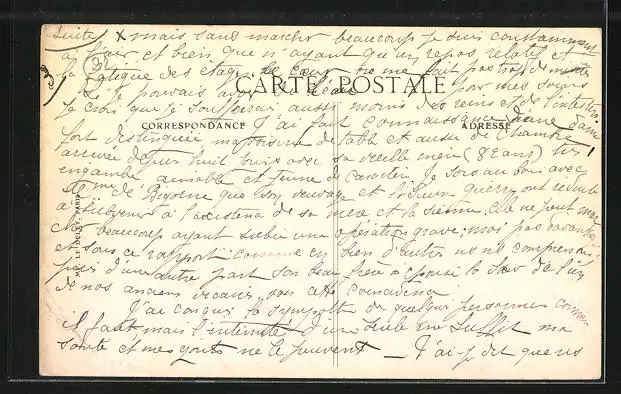 suite X mais sans marcher beaucoup je suis constamment
à l'air et bien que n'ayant qu'un repos relatif et
la fatigue des étages le cœur ne me fait pas trop de
je pouvais pour mes soins
CARTE POSTALE
je crois que je souffrirai aussi moins des reins et de l'intestin.
J'ai fait connaissance d'une dame
CORRESPONDANCE
ADRESSE
fort distinguée ma voisine de table et aussi de chambre
arrivée depuis huit jours avec sa vieille mère (82 ans) très
ingambe aimable et jeune de caractère. Je sors au bois avec
Mme de que son veuvage et guerre ont
à à de sa mère et la sienne. Elle ne peut mar
cher beaucoup ayant subi une opération grave, moi pas davantage
et sous ce rapport comme en bien d'autres ns ns comprenons
puis d'une autre part son beau frère a épousé la sœur de l'un
de nos anciens vicaires
LE DELEY, PARIS
J'ai conquis la sympathie de quelques personnes comme
il faut mais l'intimité d'une seule me suffit ma
santé et mes goûts ne le peuvent — J'ai-je dit que ns